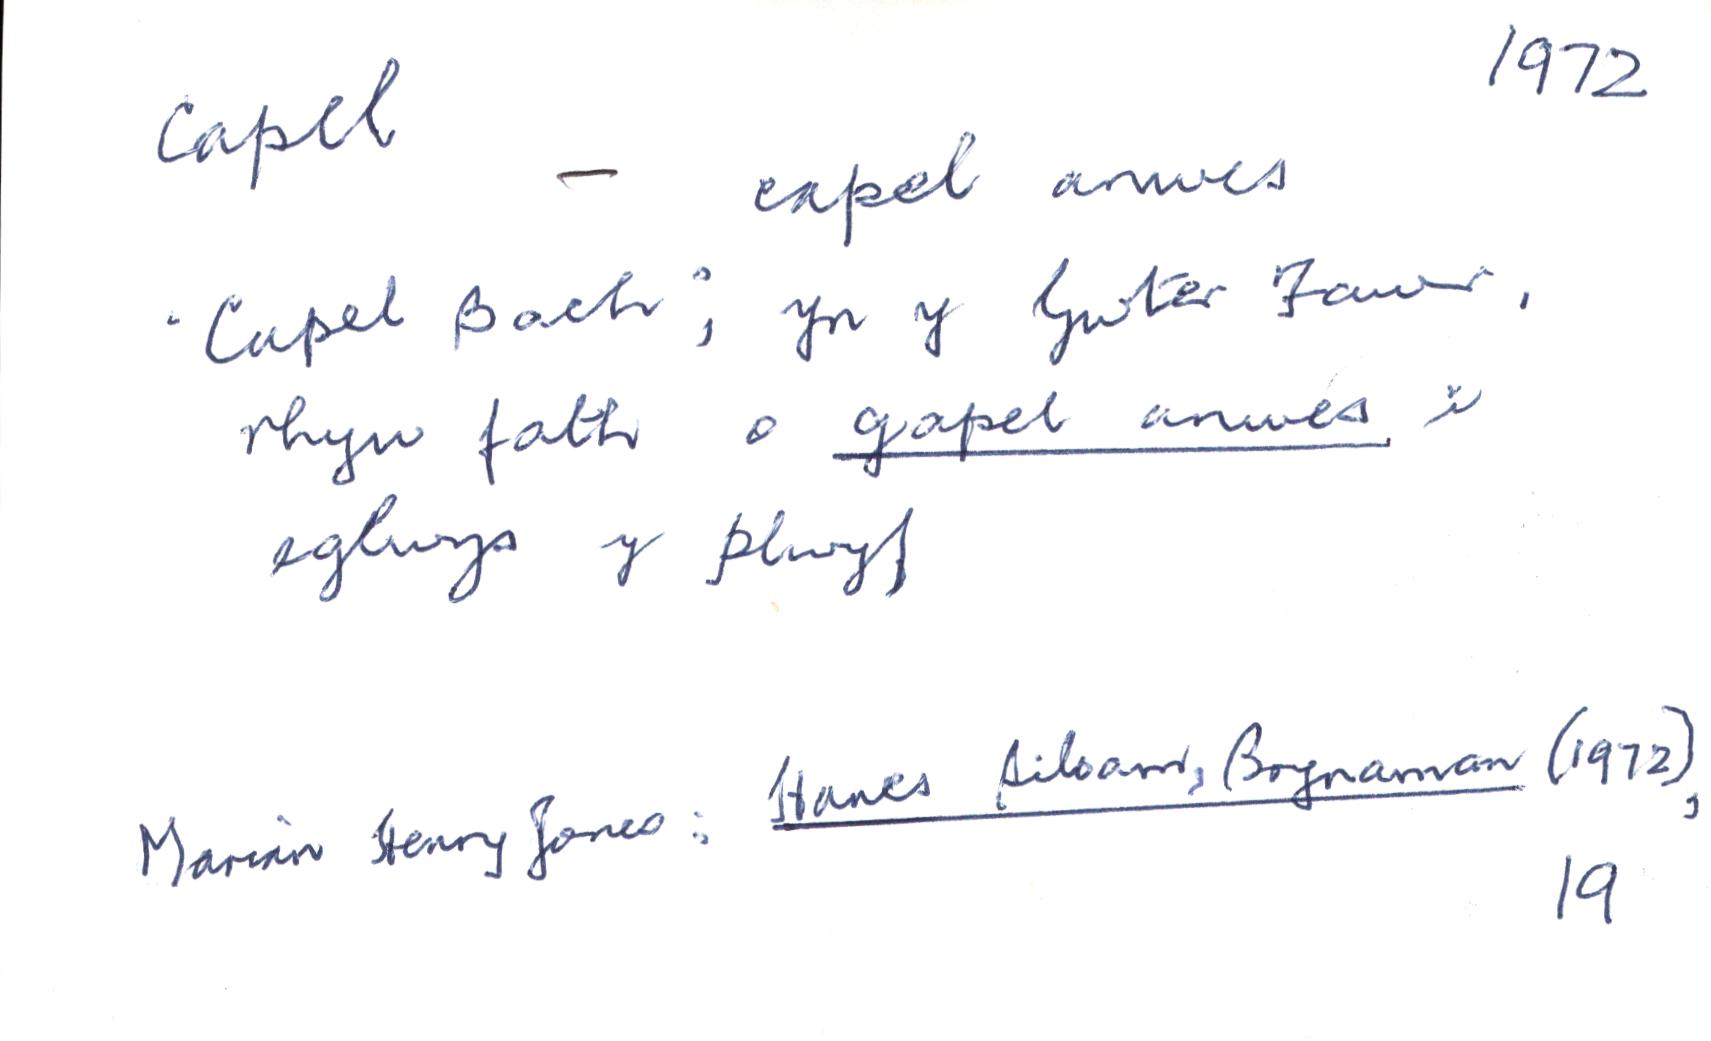 1972
Capel
– capel anwes
'Capel Bach', yn y Gwter Fawr,
rhyw fath o gapel anwes i
eglwys y plwyf
Marian Henry Jones: Hanes Siloam, Brynaman (1972),
19